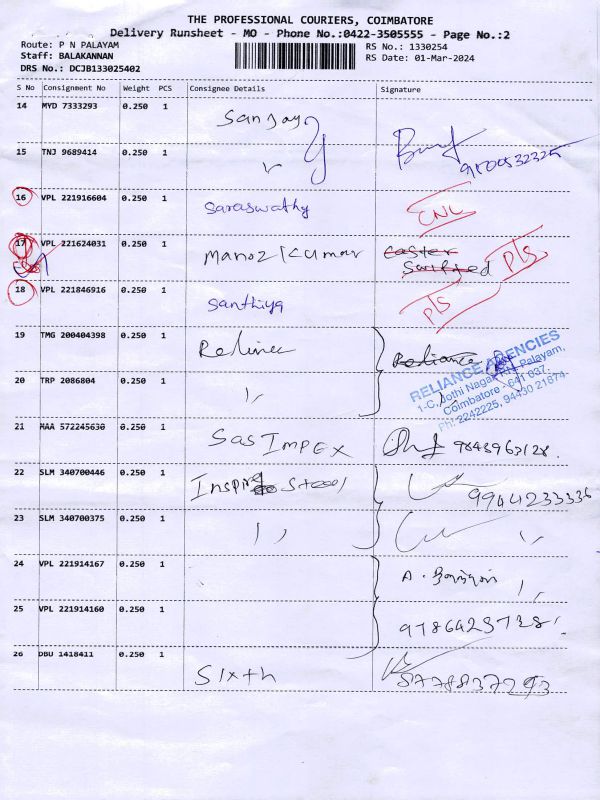 THE PROFESSIONAL COURIERS, COIMBATORE
Delivery Runsheet - MO - Phone No.:0422-3505555 - Page No.:2
Route: P N PALAYAM
RS No.: 1330254
Staff: BALAKANNAN
RS Date: 01-Mar-2024
DRS No.: DCJB133025402
S No Consignment No Weight PCS Consignee Details Signature
14 MYD 7333293 0.250 1 Sanjay
15 TNJ 9689414 0.250 1
16 VPL 221916604 0.250 1 Saraswathy CNL
17 VPL 221624031 0.250 1 Manoz Kumar Pls
18 VPL 221846916 0.250 1 Santhiya Pls
19 TMG 200404398 0.250 1 Reliance
20 TRP 2086804 0.250 1 ,,
RELIANCE AGENCIES
1-C, Jothi Nagar, P.N. Palayam,
Coimbatore - 641 037.
Ph: 2242225, 94430 21874
21 MAA 572245630 0.250 1 Sas IMPEX 9843963128.
22 SLM 340700446 0.250 1 Inspire Steel 9944233336
23 SLM 340700375 0.250 1 ,, ,,
24 VPL 221914167 0.250 1 ,,
25 VPL 221914160 0.250 1
26 DBU 1418411 0.250 1 Sixth